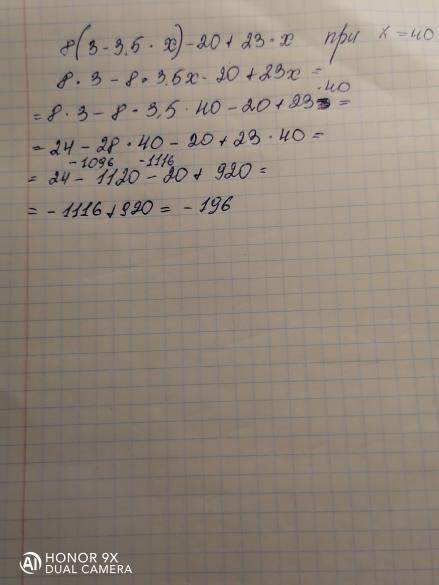 8(3-3,5·x)-20+23·x при x=40
8·3-8·3,5x-20+23x=
·40
=8·3-8·3,5·40-20+23 =
=24-28·40-20+23·40=
-1096 -1116
=24-1120-20+920=
=-1116+920=-196
HONOR 9X
DUAL CAMERA